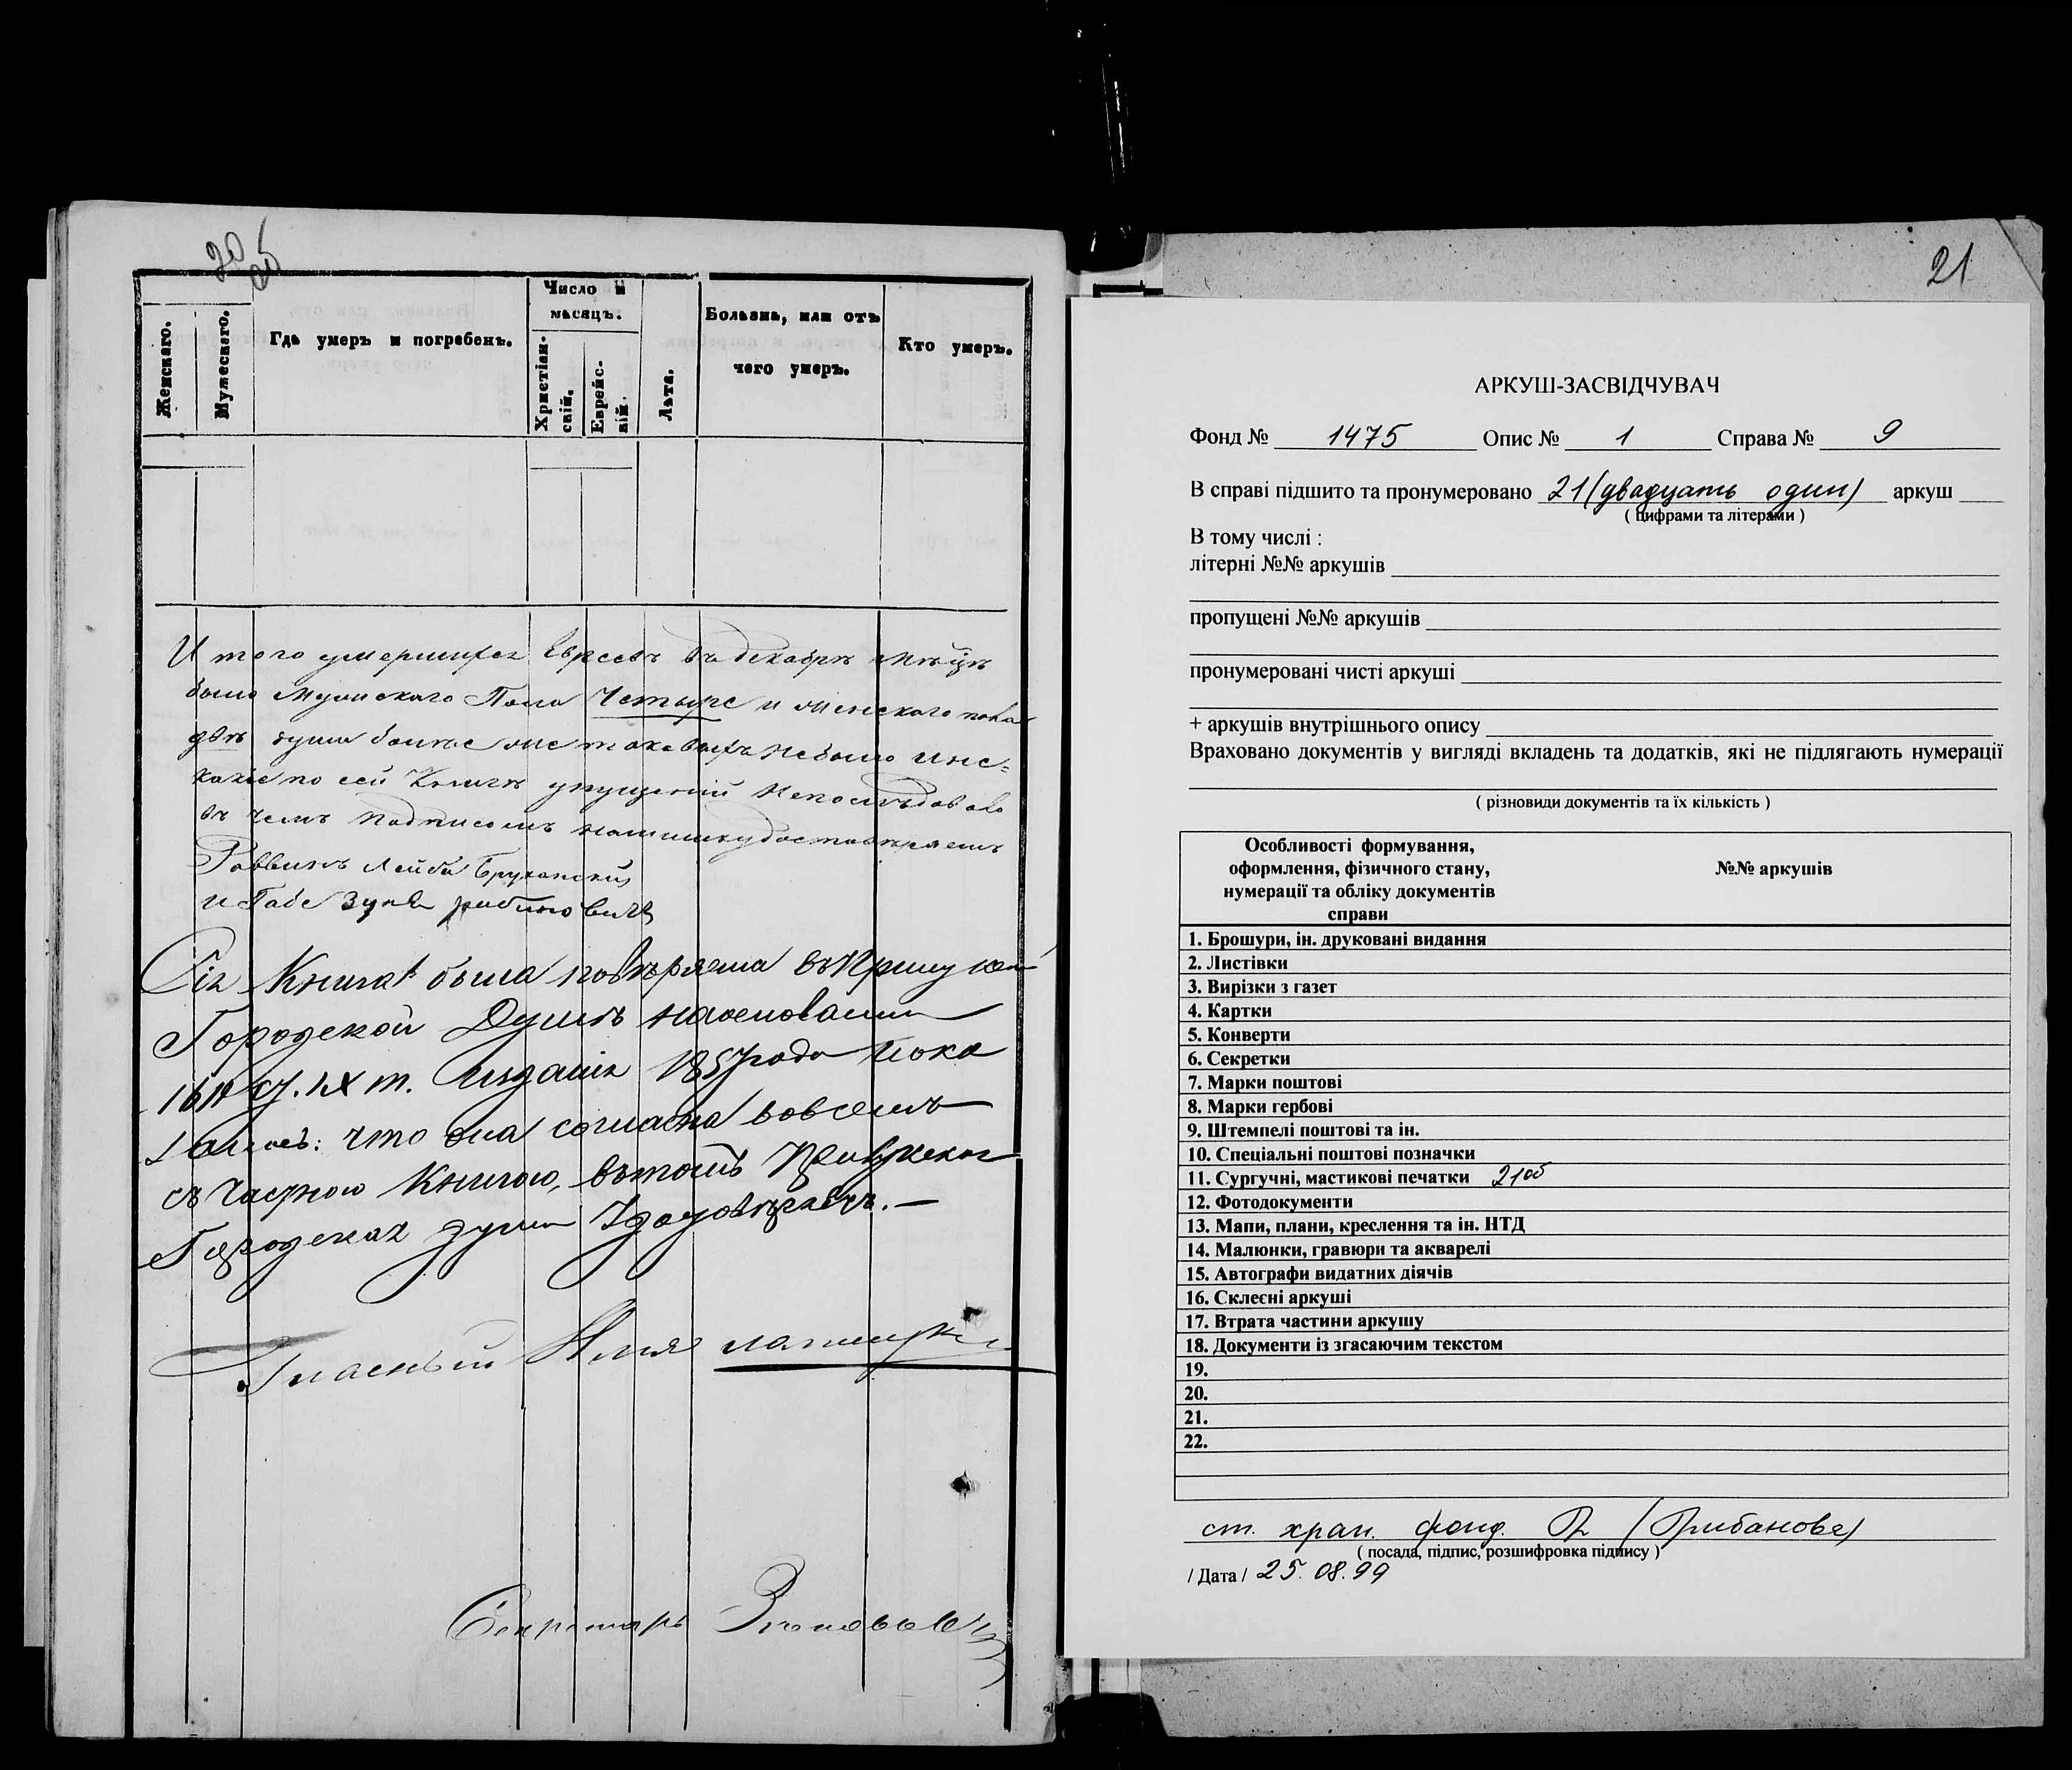 20 об
Женскаго.
Мужескаго.
Гдѣ умеръ и погребенъ.
Число и
мѣсяцъ.
Христіан-
скій.
Еврейс-
кій.
Лѣта.
Болѣзнь, или отъ
чего умеръ.
Кто умеръ.
Итого умершихъ Евреевъ въ декабрѣ мѣсцѣ
было мужскаго Пола Четыре и женскаго пола
двѣ души болѣе же таковыхъ небыло и не=
какіе по сей Книгѣ упущеній непослѣдовало
въ чемъ подписомъ нашимъ удостовѣряемъ
Раввинъ Лейба Брухански
и Габе Зуня рабиновичъ
Сія Книга была повѣряема въ
Городской Думѣ на основаніи
ст. IX т. Изданія 1857 года и ока
залось: что она согласна вовсемъ
съ Частною Книгою, въ томъ
Городская дума удостовѣряетъ. —
Гласный Илья
Секретарь
21
АРКУШ-ЗАСВІДЧУВАЧ
Фонд № 1475 Опис № 1 Справа № 9
В справі підшито та пронумеровано 21 (двадцать один) аркуш
( цифрами та літерами )
В тому числі :
літерні №№ аркушів
пропущені №№ аркушів
пронумеровані чисті аркуші
+ аркушів внутрішнього опису
Враховано документів у вигляді вкладень та додатків, які не підлягають нумерації
( різновиди документів та їх кількість )
Особливості формування,
оформлення, фізичного стану,
нумерації та обліку документів
справи
№№ аркушів
1. Брошури, ін. друковані видання
2. Листівки
3. Вирізки з газет
4. Картки
5. Конверти
6. Секретки
7. Марки поштові
8. Марки гербові
9. Штемпелі поштові та ін.
10. Спеціальні поштові позначки
11. Сургучні, мастикові печатки 21об
12. Фотодокументи
13. Мапи, плани, креслення та ін. НТД
14. Малюнки, гравюри та акварелі
15. Автографи видатних діячів
16. Склеєні аркуші
17. Втрата частини аркушу
18. Документи із згасаючим текстом
19.
20.
21.
22.
ст. хран. фонд. (Грибанова)
( посада, підпис, розшифровка підпису )
/ Дата / 25.08.99